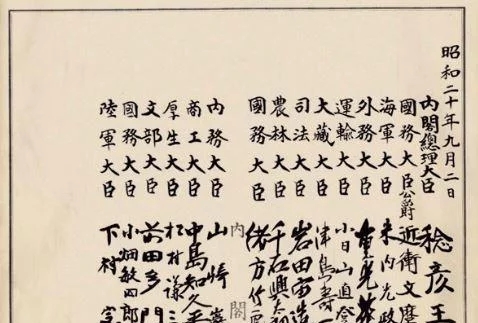 昭和二十年九月二日
内閣總理大臣 稔彦王
國務大臣公爵 近衞文麿
海軍大臣 米内光政
外務大臣 重光葵
運輸大臣 小日山直登
大藏大臣 津島壽一
司法大臣 岩田宙造
農林大臣 千石興太
國務大臣 緒方竹虎
内閣
内務大臣 山崎巖
商工大臣 中島知久平
厚生大臣 松村謙三
文部大臣 前田多門
國務大臣 小畑敏四郎
陸軍大臣 下村定